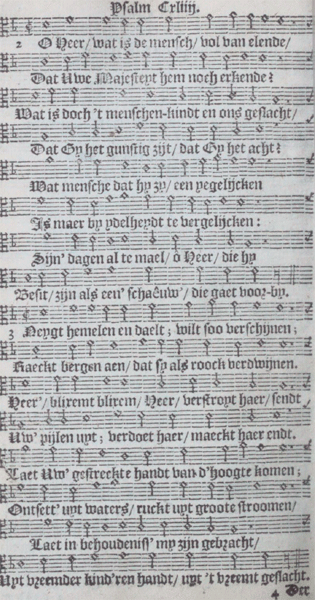 Psalm Cxliij.
2 O Heer/ wat is de mensch/ vol van elende/
Dat Uwe Majesteyt hem noch erkende?
Wat is doch 't menschen-kindt en ons geslacht/
Dat Gy het gunstig zijt/ dat Gy het acht?
Wat mensche dat hy zy/ een yegelijcken
Is maer by ydelheydt te vergelijcken:
Sijn' dagen al te mael/ ô Heer/ die hy
Besit/ zijn als een' schaêuw'/ die gaet voor-by.
3 Neygt hemelen en daelt; wilt soo verschijnen;
Raeckt bergen aen/ dat sy als roock verdwijnen.
Heer'/ blixemt blixem/ Heer/ verstroyt haer/ sendt
Uw' pijlen uyt; verdoet haer/ maeckt haer endt.
Laet Uw' gestreckte handt van d'hoogte komen;
Ontsett' uyt waters/ ruckt uyt groote stroomen/
Laet in behoudenis' my zijn gebracht/
Uyt vreemder kind'ren handt/ uyt 't vreemt geslacht.
4 Der